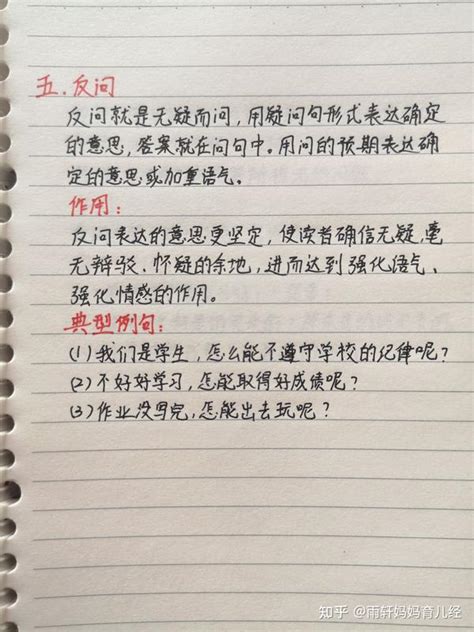 五.反问
反问就是无疑而问,用疑问句形式表达确定
的意思,答案就在问句中。用问的预期表达确
定的意思或加重语气。
作用:
反问表达的意思更坚定,使读者确信无疑,毫
无辩驳、怀疑的余地,进而达到强化语气、
强化情感的作用。
典型例句:
(1)我们是学生,怎么能不遵守学校的纪律呢?
(2)不好好学习,怎能取得好成绩呢?
(3)作业没写完,怎能出去玩呢?
知乎 @雨轩妈妈育儿经